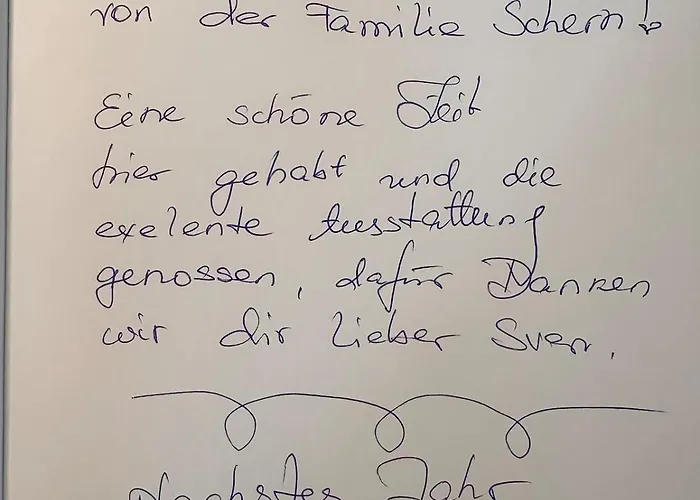 von der Familie Schern!
Eine schöne Zeit
hier gehabt und die
exelente Ausstattung
genossen, dafür Danken
wir dir lieber Sven.
Nächstes Jahr